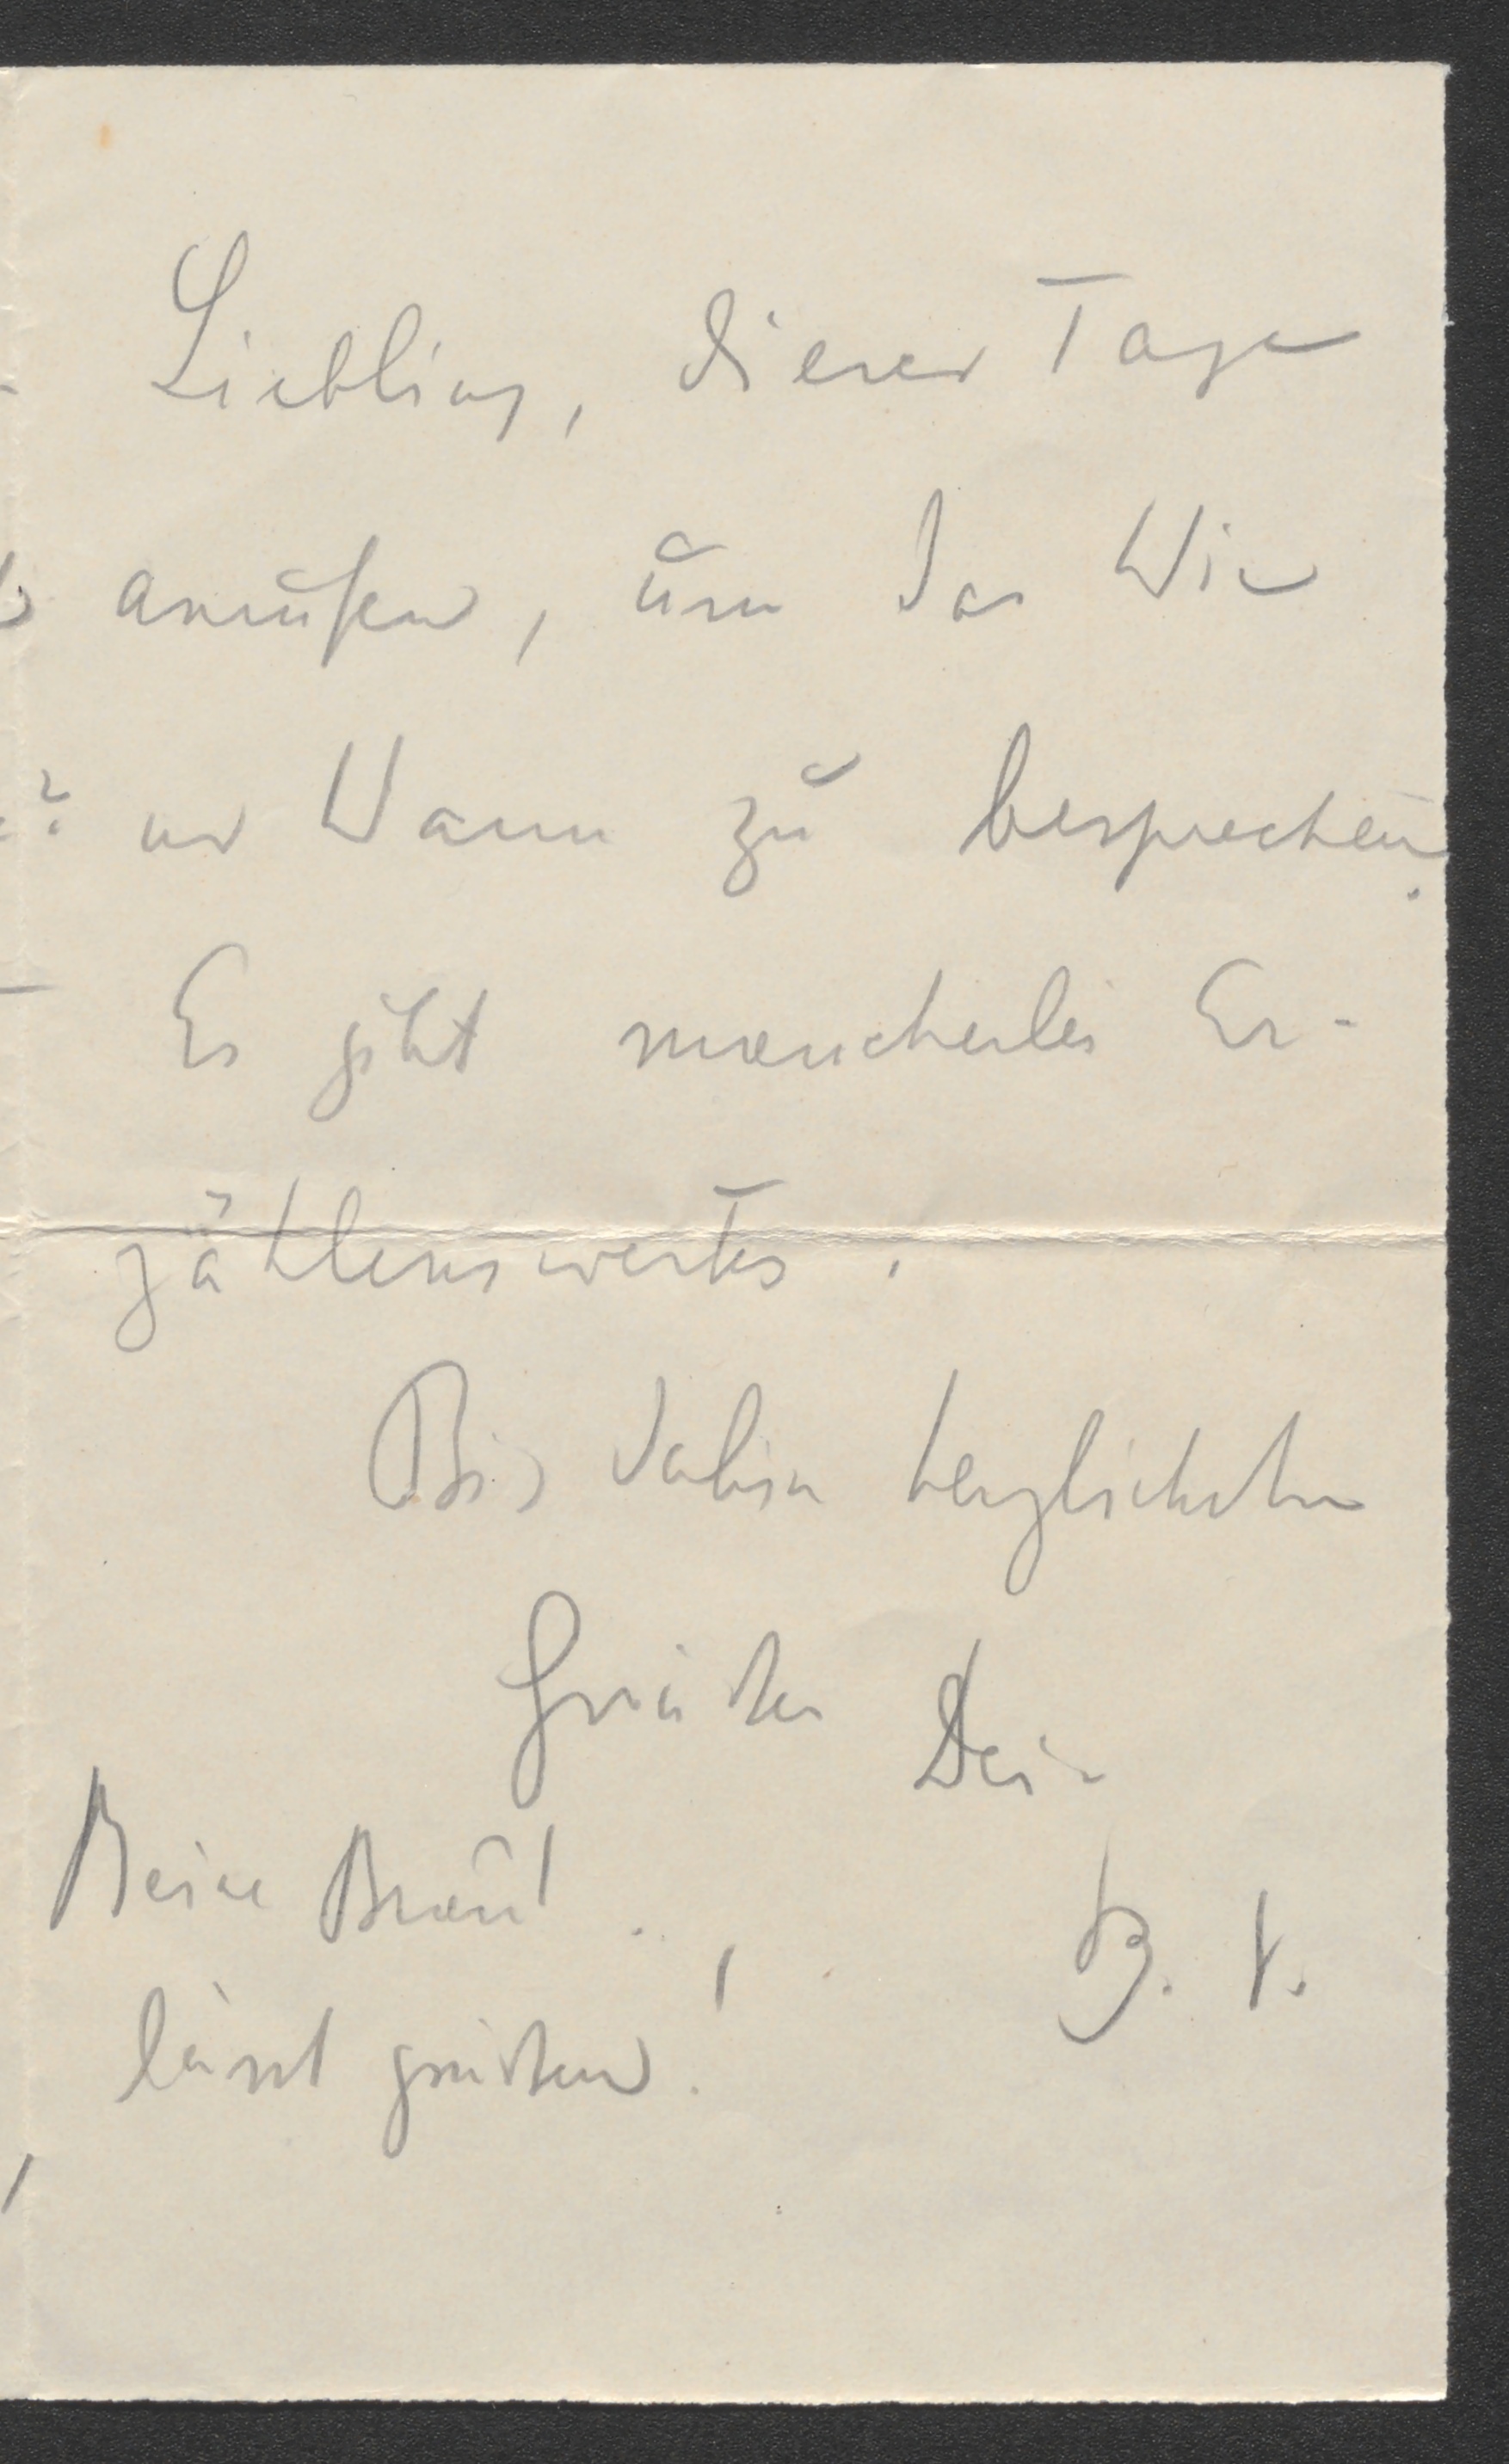 Liebling, dieser Tage
anrufen, um das Wie
un Wann zu besprechen.
Es gibt mancherlei Er-
zählenswertes.
Bis dahin herzlichste
Grüsse Dein
Meine Braut
B. V.
lässt grüssen!